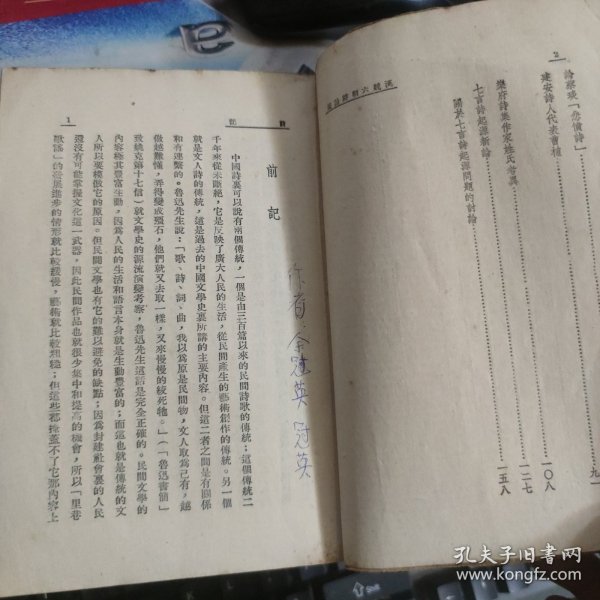 2
漢魏六朝詩論叢
論蔡琰「悲憤詩」……九一
建安詩人代表曹植……一〇八
樂府詩集作家姓氏考異……一二七
七言詩起源新論
關於七言詩起源問題的討論……一五八
前記
1
前記
中國詩裏可以說有兩個傳統，一個是由三百篇以來的民間詩歌的傳統；這個傳統二
千年來從未斷絕，它是反映了廣大人民的生活，從民間產生的藝術創作的傳統。另一個
就是文人詩的傳統，這是過去的中國文學史裏所講的主要內容。但這二者之間是有關係
和有連繫的。魯迅先生說：「歌、詩、詞、曲，我以爲原是民間物，文人取爲己有，越
做越難懂，弄得變成殭石，他們就又去取一樣，又來慢慢的絞死牠。」（「魯迅書簡」
致姚克第十七信）就文學史的源流演變考察，魯迅先生這話是完全正確的。民間文學的
內容極其豐富生動，因爲人民的生活和語言本身就是生動豐富的；而這也就是傳統的文
人所以要模倣它的原因。但民間文學也有它的難以避免的缺點；因爲封建社會裏的人民
還沒有可能掌握文化這一武器，因此民間作品也就很少集中和提高的機會，所以「里巷
歌謠」的發展進步的情形就比較緩慢，藝術就比較粗糙；但這些都掩蓋不了它那內容上
余冠英 冠英
孔夫子旧书网
www.kongfz.com